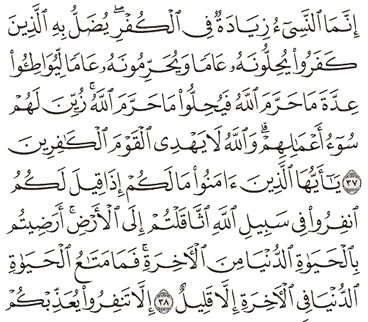 إِنَّمَا ٱلنَّسِىٓءُ زِيَادَةٌ فِى ٱلْكُفْرِ ۖ يُضَلُّ بِهِ ٱلَّذِينَ
كَفَرُوا۟ يُحِلُّونَهُۥ عَامًا وَيُحَرِّمُونَهُۥ عَامًا لِّيُوَاطِـُٔوا۟
عِدَّةَ مَا حَرَّمَ ٱللَّهُ فَيُحِلُّوا۟ مَا حَرَّمَ ٱللَّهُ ۚ زُيِّنَ لَهُمْ
سُوٓءُ أَعْمَـٰلِهِمْ ۗ وَٱللَّهُ لَا يَهْدِى ٱلْقَوْمَ ٱلْكَـٰفِرِينَ
٣٧ يَـٰٓأَيُّهَا ٱلَّذِينَ ءَامَنُوا۟ مَا لَكُمْ إِذَا قِيلَ لَكُمُ
ٱنفِرُوا۟ فِى سَبِيلِ ٱللَّهِ ٱثَّاقَلْتُمْ إِلَى ٱلْأَرْضِ ۚ أَرَضِيتُم
بِٱلْحَيَوٰةِ ٱلدُّنْيَا مِنَ ٱلْـَٔاخِرَةِ ۚ فَمَا مَتَـٰعُ ٱلْحَيَوٰةِ
ٱلدُّنْيَا فِى ٱلْـَٔاخِرَةِ إِلَّا قَلِيلٌ ٣٨ إِلَّا تَنفِرُوا۟ يُعَذِّبْكُمْ